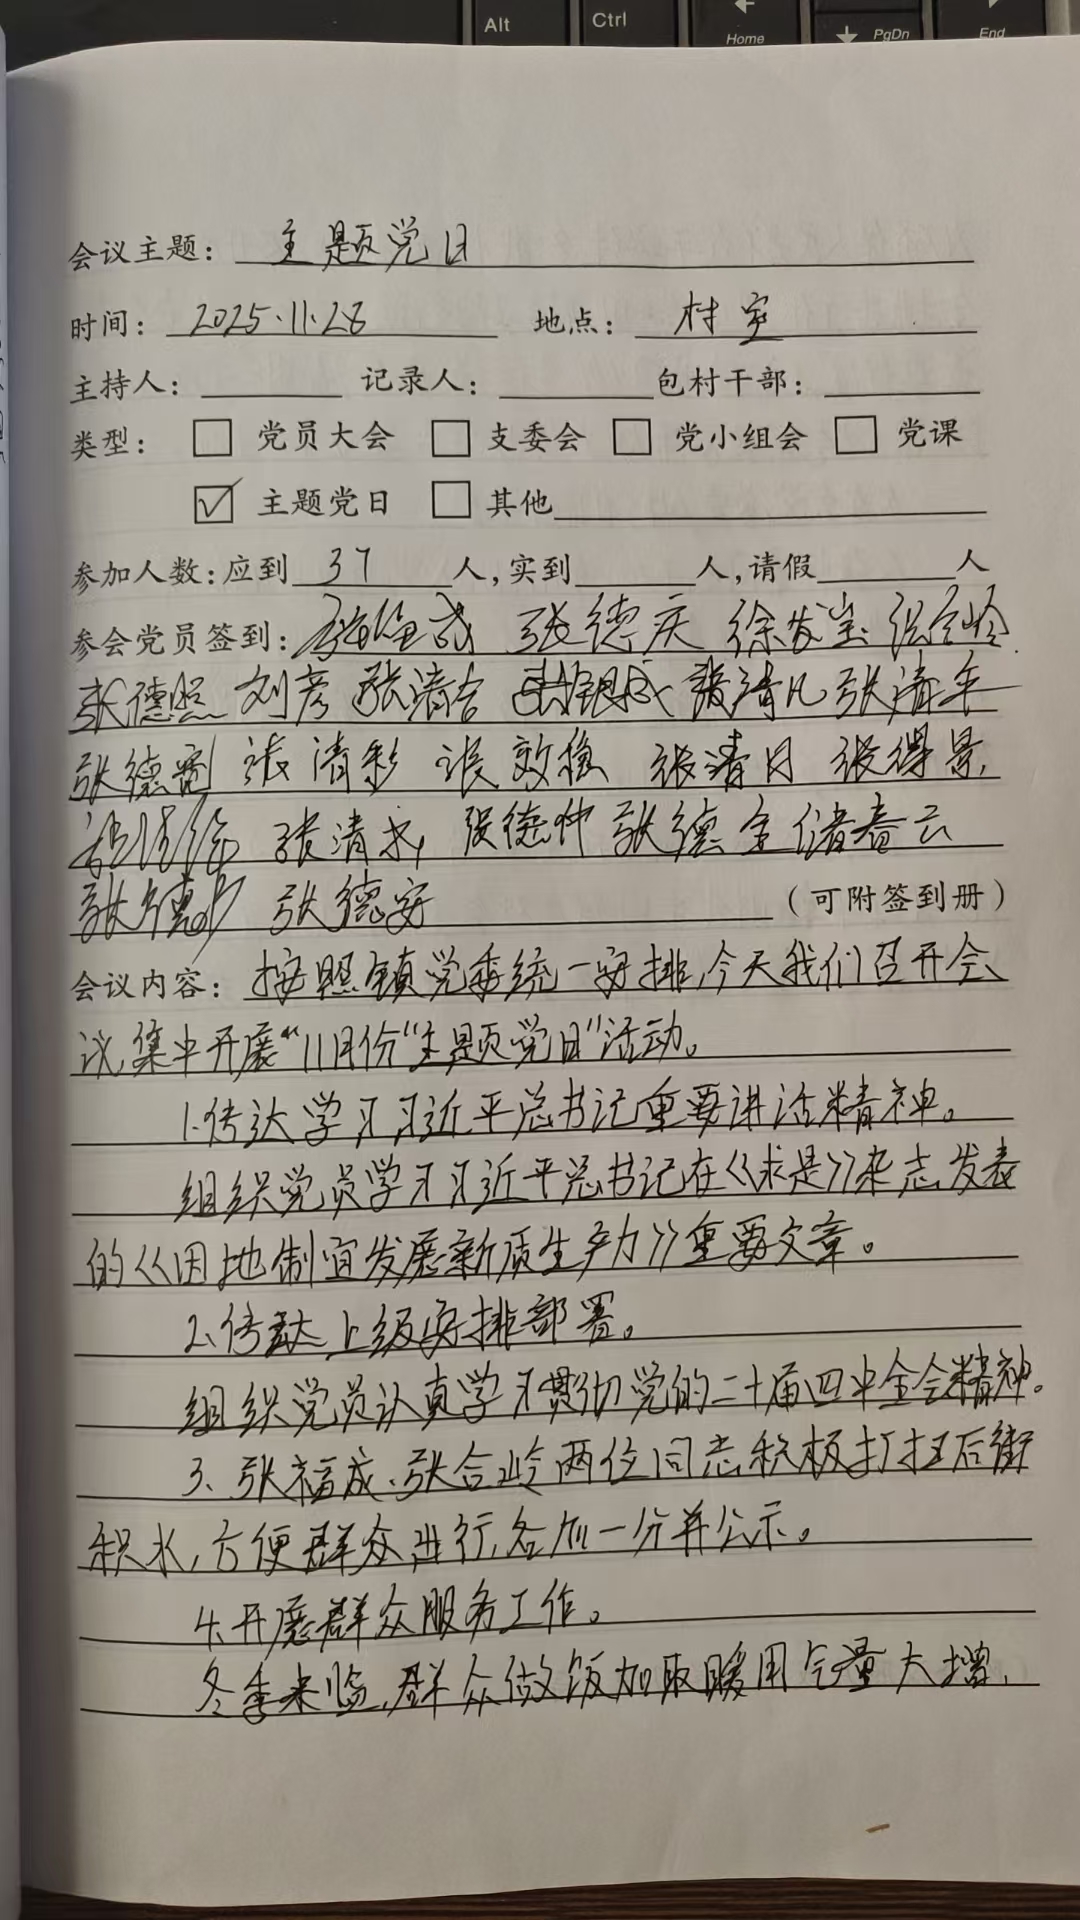 Alt Ctrl Home PgDn End
会议主题: 主题党日
时间: 2025.11.28 地点: 村室
主持人: 记录人: 包村干部:
类型: 党员大会 支委会 党小组会 党课
主题党日 其他
参加人数:应到 37 人,实到 人,请假 人
参会党员签到: 张德庆 徐发宝
张德照 刘彦 张清合 张清凡 张清年
张清彩 张效稳 张清月 张得景
张清 张德仲 张德全 储春云
张德 张德安 (可附签到册)
会议内容: 按照镇党委统一安排,今天我们召开会
议,集中开展“11月份“主题党日”活动。
1.传达学习习近平总书记重要讲话精神。
组织党员学习习近平总书记在《求是》杂志发表
的《因地制宜发展新质生产力》重要文章。
2、传达上级安排部署。
组织党员认真学习贯彻党的二十届四中全会精神。
3、张福成、张合岭两位同志积极打扫后街
积水,方便群众进行,各加一分并公示。
4.开展群众服务工作。
冬季来临,群众做饭加取暖用气量大增,